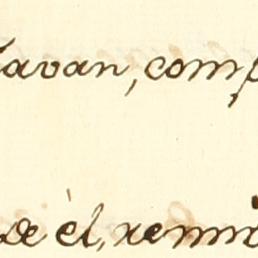 avan, comp
de èl, remi